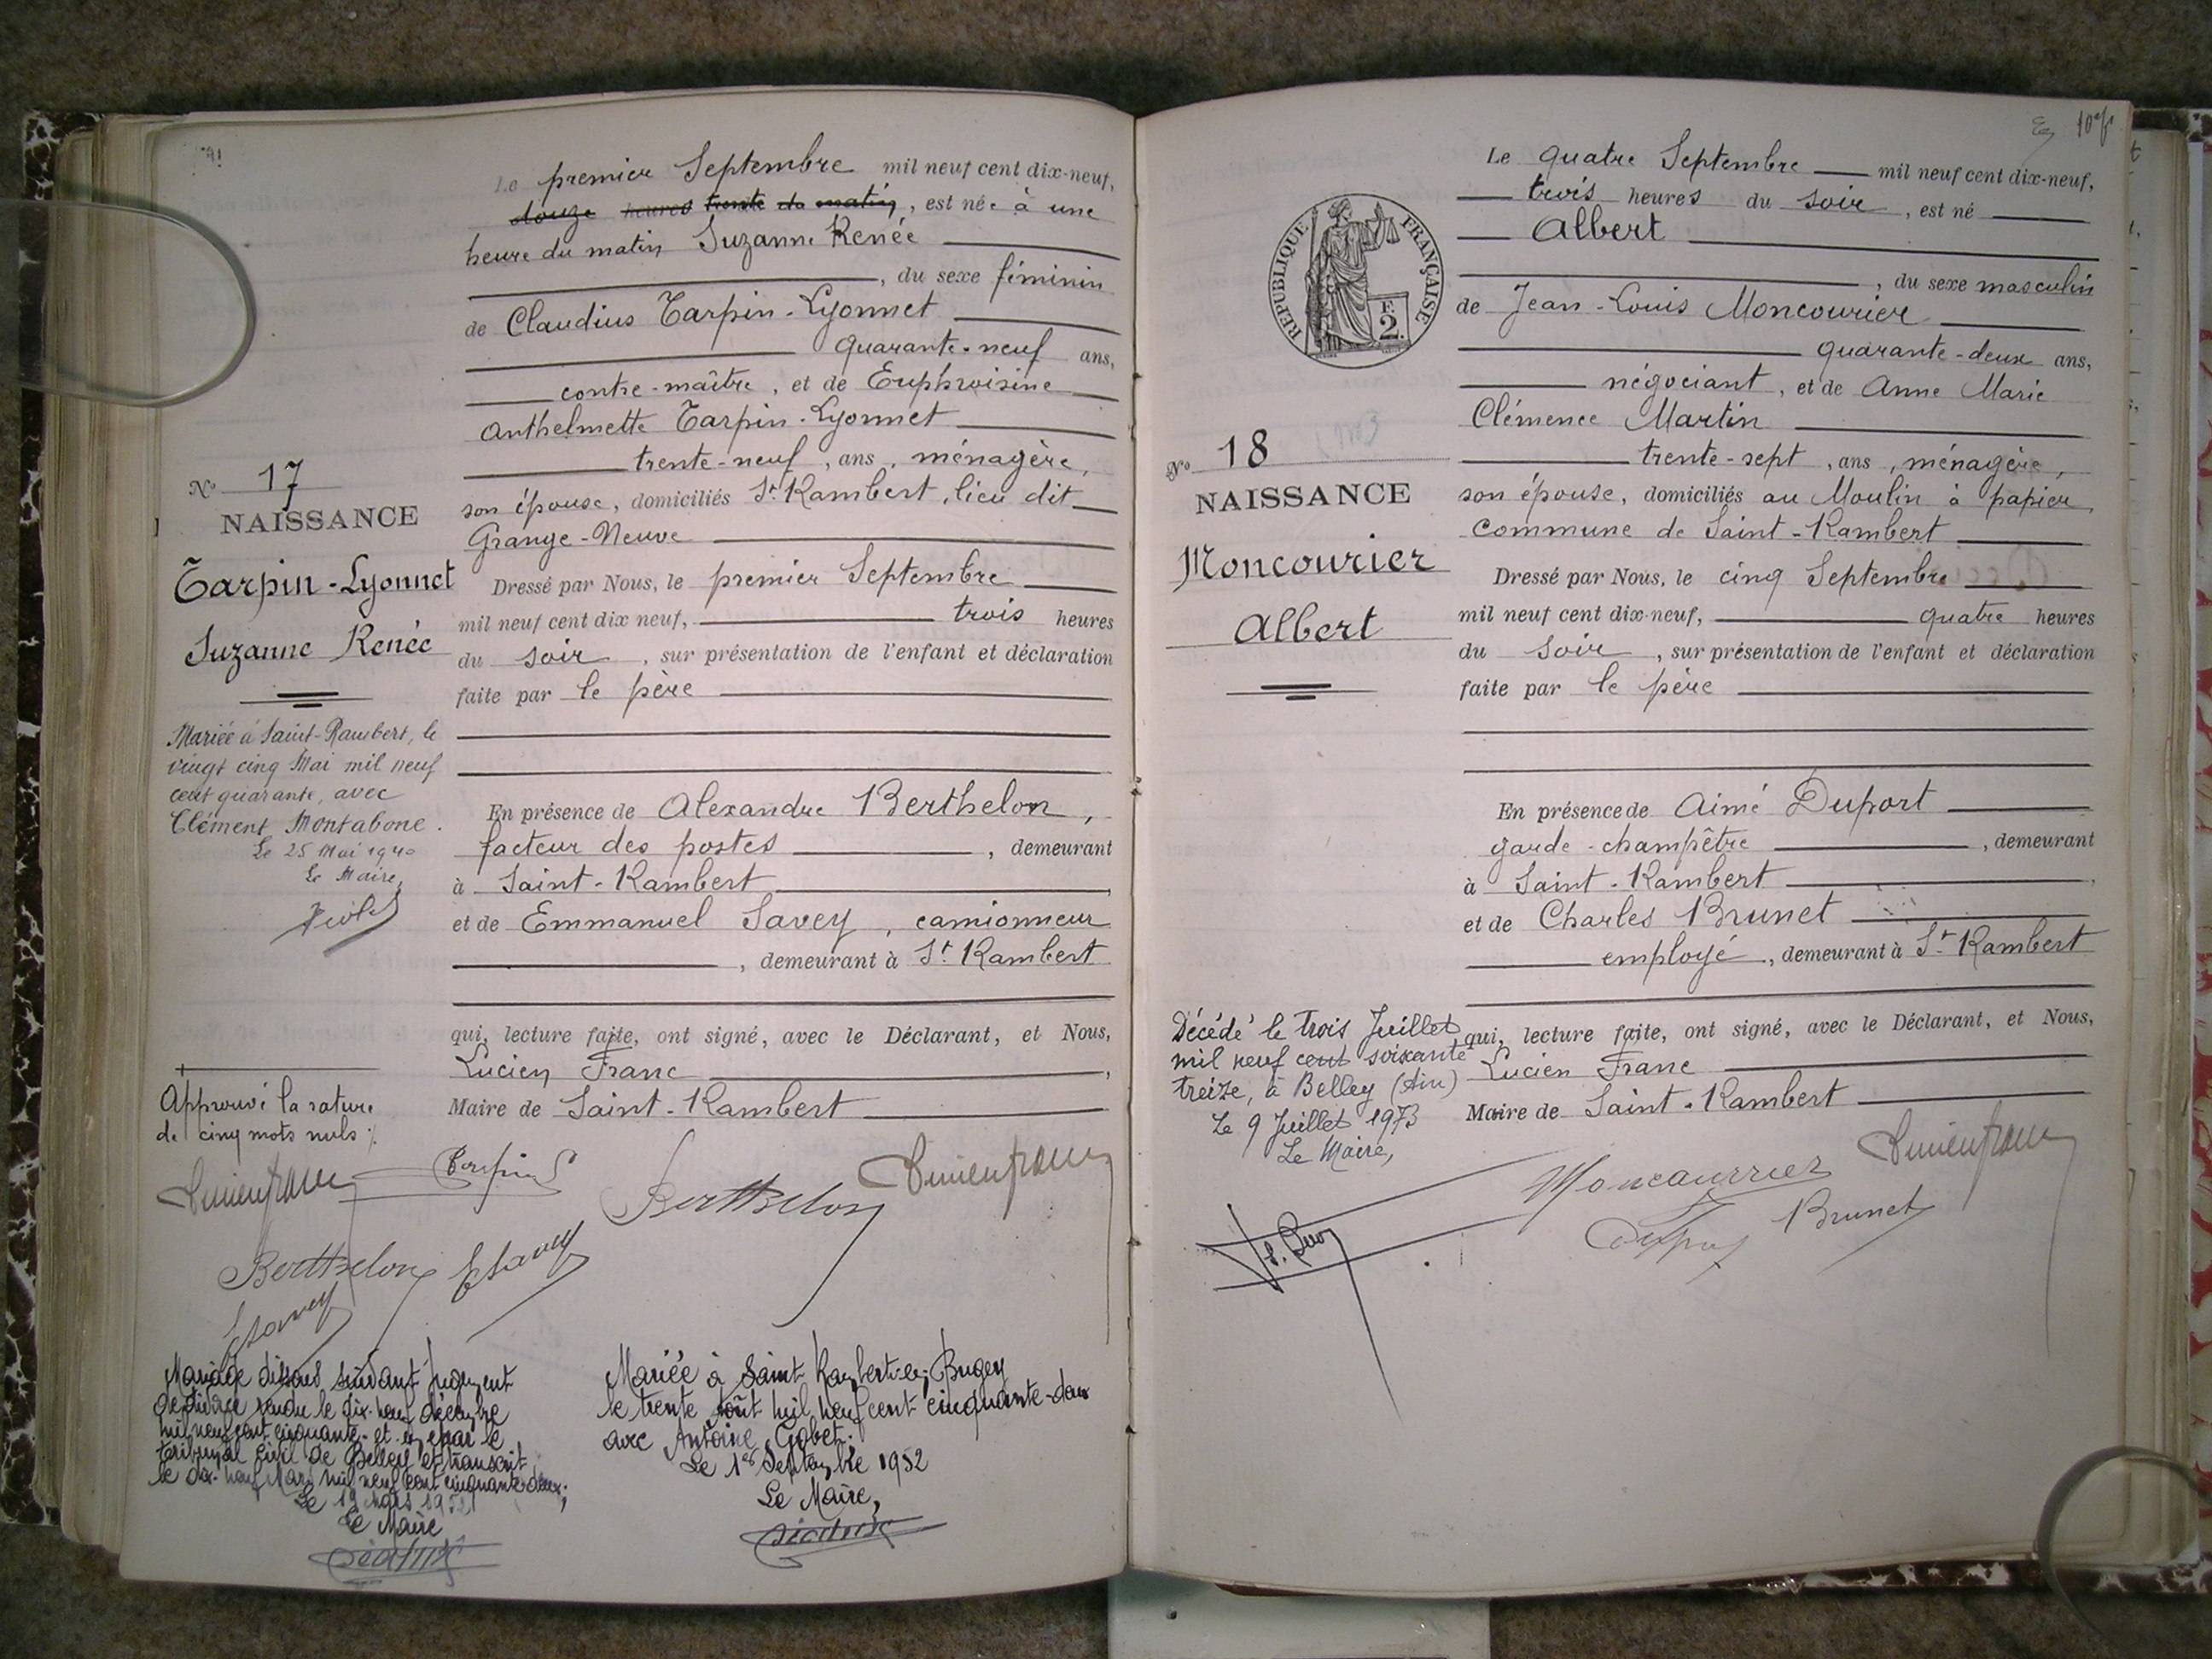 Le premier Septembre mil neuf cent dix-neuf,
douze heures trente du matin, est née à une
heure du matin Suzanne Renée
, du sexe féminin
de Claudius Tarpin-Lyonnet
quarante-neuf ans,
contre-maître, et de Euphroisine
Anthelmette Tarpin-Lyonnet
trente-neuf, ans, ménagère,
son épouse, domiciliés St Rambert, lieu dit
Grange-Neuve
No 17
NAISSANCE
Tarpin-Lyonnet
Suzanne Renée
Dressé par Nous, le premier Septembre
mil neuf cent dix neuf, trois heures
du soir, sur présentation de l'enfant et déclaration
faite par le père
Mariée à Saint-Rambert, le
vingt cinq Mai mil neuf
cent quarante, avec
Clément Montabone.
Le 25 Mai 1940
Le Maire,
En présence de Alexandre Berthelon,
facteur des postes, demeurant
à Saint-Rambert
et de Emmanuel Savey, camionneur
, demeurant à St Rambert
qui, lecture faite, ont signé, avec le Déclarant, et Nous,
Lucien Franc,
Maire de Saint-Rambert
Approuvé la rature
de cinq mots nuls
Lucien Franc
Tarpin L
Berthelon
Lucien Franc
Berthelon
E Savey
E Savey
Mariage dissous suivant jugement
de divorce rendu le dix-neuf décembre
mil neuf cent cinquante-et-un par le
tribunal civil de Belley et transcrit
le dix-neuf Mars mil neuf cent cinquante-deux.
Le 19 Mars 1952
Le Maire
Mariée à Saint Rambert-en-Bugey
le trente Août mil neuf cent cinquante-deux
avec Antoine Gobet.
Le 1er Septembre 1952
Le Maire,
Le quatre Septembre mil neuf cent dix-neuf,
trois heures du soir, est né
Albert
, du sexe masculin
de Jean-Louis Moncourier
quarante-deux ans,
négociant, et de Anne Marie
Clémence Martin
trente-sept, ans, ménagère,
son épouse, domiciliés au Moulin à papier
commune de Saint-Rambert
RÉPUBLIQUE FRANÇAISE
F.
2.
No 18
NAISSANCE
Moncourier
Albert
Dressé par Nous, le cinq Septembre
mil neuf cent dix-neuf, quatre heures
du soir, sur présentation de l'enfant et déclaration
faite par le père
En présence de Aimé Duport
garde-champêtre, demeurant
à Saint-Rambert
et de Charles Brunet
employé, demeurant à St Rambert
Décédé le trois Juillet
mil neuf cent soixante
treize, à Belley (Ain)
Le 9 Juillet 1973
Le Maire,
qui, lecture faite, ont signé, avec le Déclarant, et Nous,
Lucien Franc
Maire de Saint-Rambert
Moncourrier
Lucien Franc
Brunet